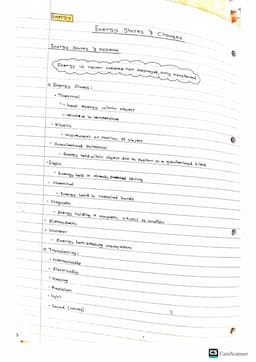 Energy
Energy Stores & Changes
Energy Stores & Systems
Energy is never created nor destroyed, only transferred
Energy Stores:
- Thermal
- heat energy within object
- related to temperature
- Kinetic
- movement or motion of object
- Gravitational Potential
- Energy held within object due to position in a gravitational field
- Elastic
- Energy held in already spring
- Chemical
- Energy held in chemical bonds
- Magnetic
- Energy holding a magnetic attract to another
- Electrostatic
- Nuclear
- Energy from breaking
Transferring:
- Mechanically
- Electrically
- Heating
- Radiation
- Light
- Sound (waves)
CS CamScanner